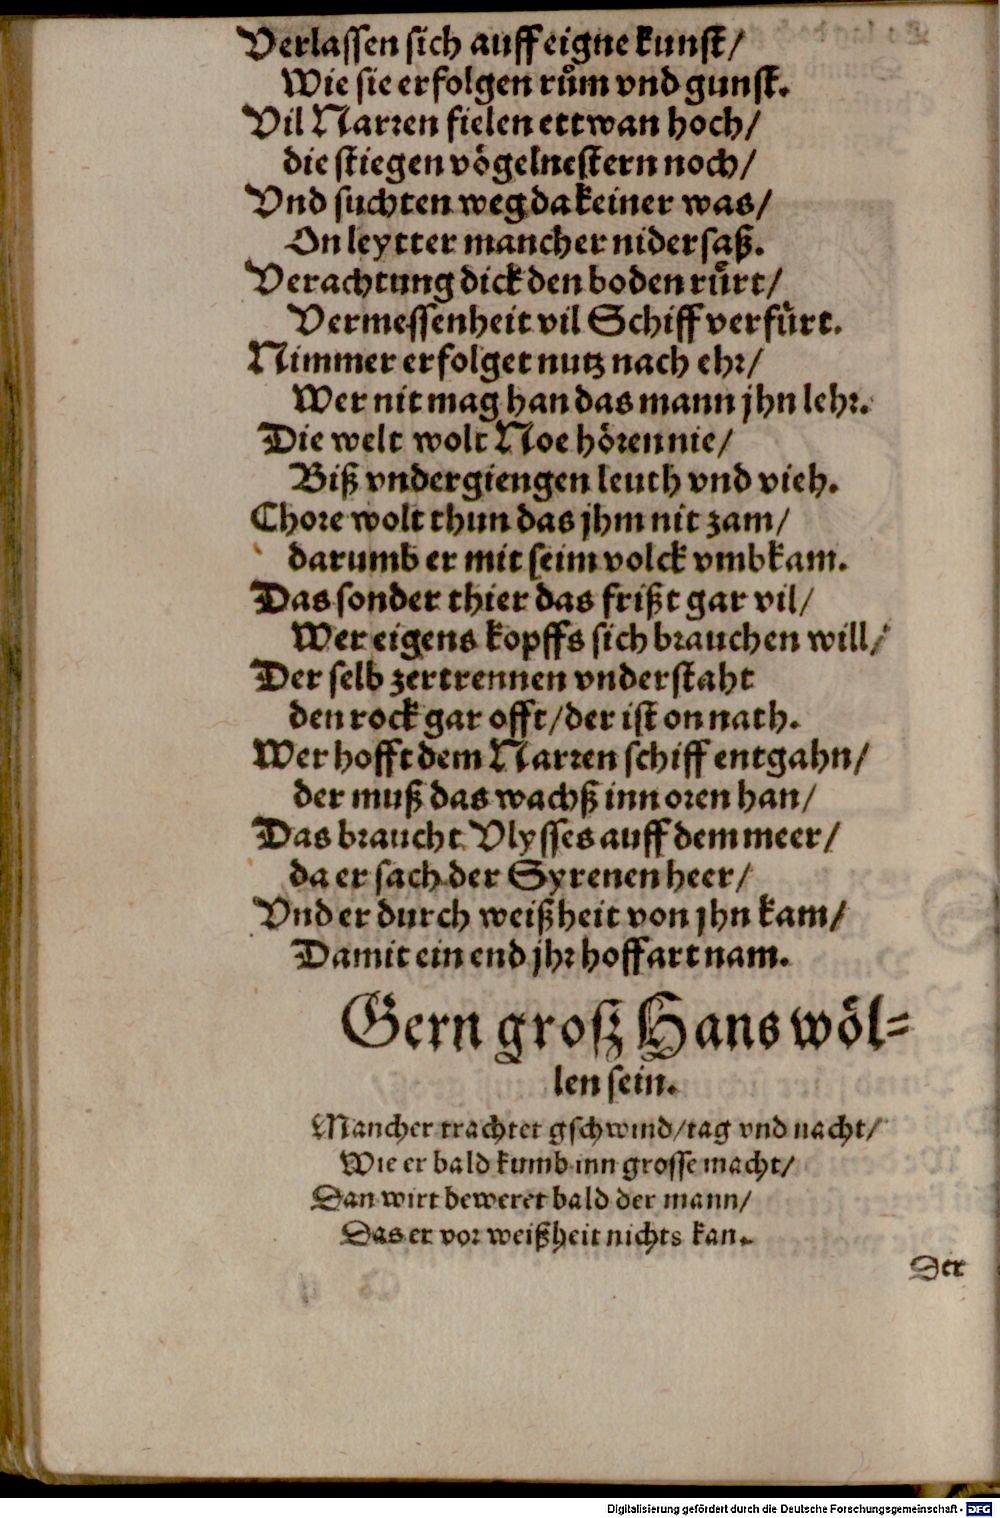 Verlassen sich auff eigne kunst/
Wie sie erfolgen ruͦm vnd gunst.
Vil Narren fielen ettwan hoch/
die stiegen voͤgelnestern noch/
Vnd suchten weg da keiner was/
On leytter mancher nider saß.
Verachtung dick den boden ruͤrt/
Vermessenheit vil Schiff verfuͤrt.
Nimmer erfolget nutz nach ehr/
Wer nit mag han das mann jhn lehr.
Die welt wolt Noe hoͤren nie/
Biß vndergiengen leuth vnd vieh.
Chore wolt thun das jhm nit zam/
darumb er mit seim volck vmbkam.
Das sonder thier das frißt gar vil/
Wer eigens kopffs sich brauchen will/
Der selb zertrennen vnderstaht
den rock gar offt/der ist on nath.
Wer hofft dem Narren schiff entgahn/
der muß das wachß inn oren han/
Das braucht Vlysses auff dem meer/
da er sach der Syrenen heer/
Vnd er durch weißheit von jhn kam/
Damit ein end jhr hoffart nam.
Gern groß Hans woͤl-
len sein.
Mancher trachtet gschwind/tag vnd nacht/
Wie er bald kumb inn grosse macht/
Dan wirt beweret bald der mann/
Das er vor weißheit nichts kan.
Der
Digitalisierung gefördert durch die Deutsche Forschungsgemeinschaft - DFG